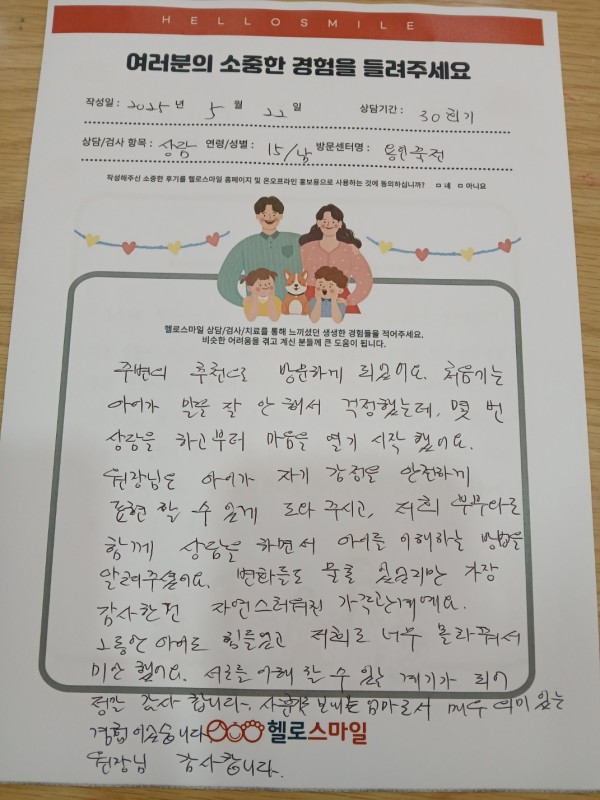 HELLOSMILE
여러분의 소중한 경험을 들려주세요
작성일 : 2025 년 5 월 22 일 상담기간 : 30회기
상담/검사 항목 : 상담 연령/성별 : 15/남 방문센터명 : 용인죽전
작성해주신 소중한 후기를 헬로스마일 홈페이지 및 온오프라인 홍보용으로 사용하는 것에 동의하십니까? ㅁ 네 ㅁ 아니요
헬로스마일 상담/검사/치료를 통해 느끼셨던 생생한 경험들을 적어주세요.
비슷한 어려움을 겪고 계신 분들께 큰 도움이 됩니다.
주변의 추천으로 방문하게 되었어요. 처음기는
아이가 말을 잘 안 해서 걱정했는데, 몇 번
상담을 하고부터 마음을 열기 시작 했어요.
원장님은 아이가 자기 감정을 안전하게
표현 할 수 있게 도와 주시고, 저희 부부와도
함께 상담을 하면서 아이를 이해하는 방법을
알려주셨어요. 변화들도 물론 있었지만 가장
감사한건 자연스러워진 가족관계예요.
그동안 아이도 힘들었고 저희도 너무 몰라줘서
미안 했어요. 서로를 이해 할 수 있는 계기가 되어
정말 감사 합니다. 사춘기를 보내는 엄마로서 매우 의미 있는
경험이었습니다
헬로스마일
원장님 감사합니다.